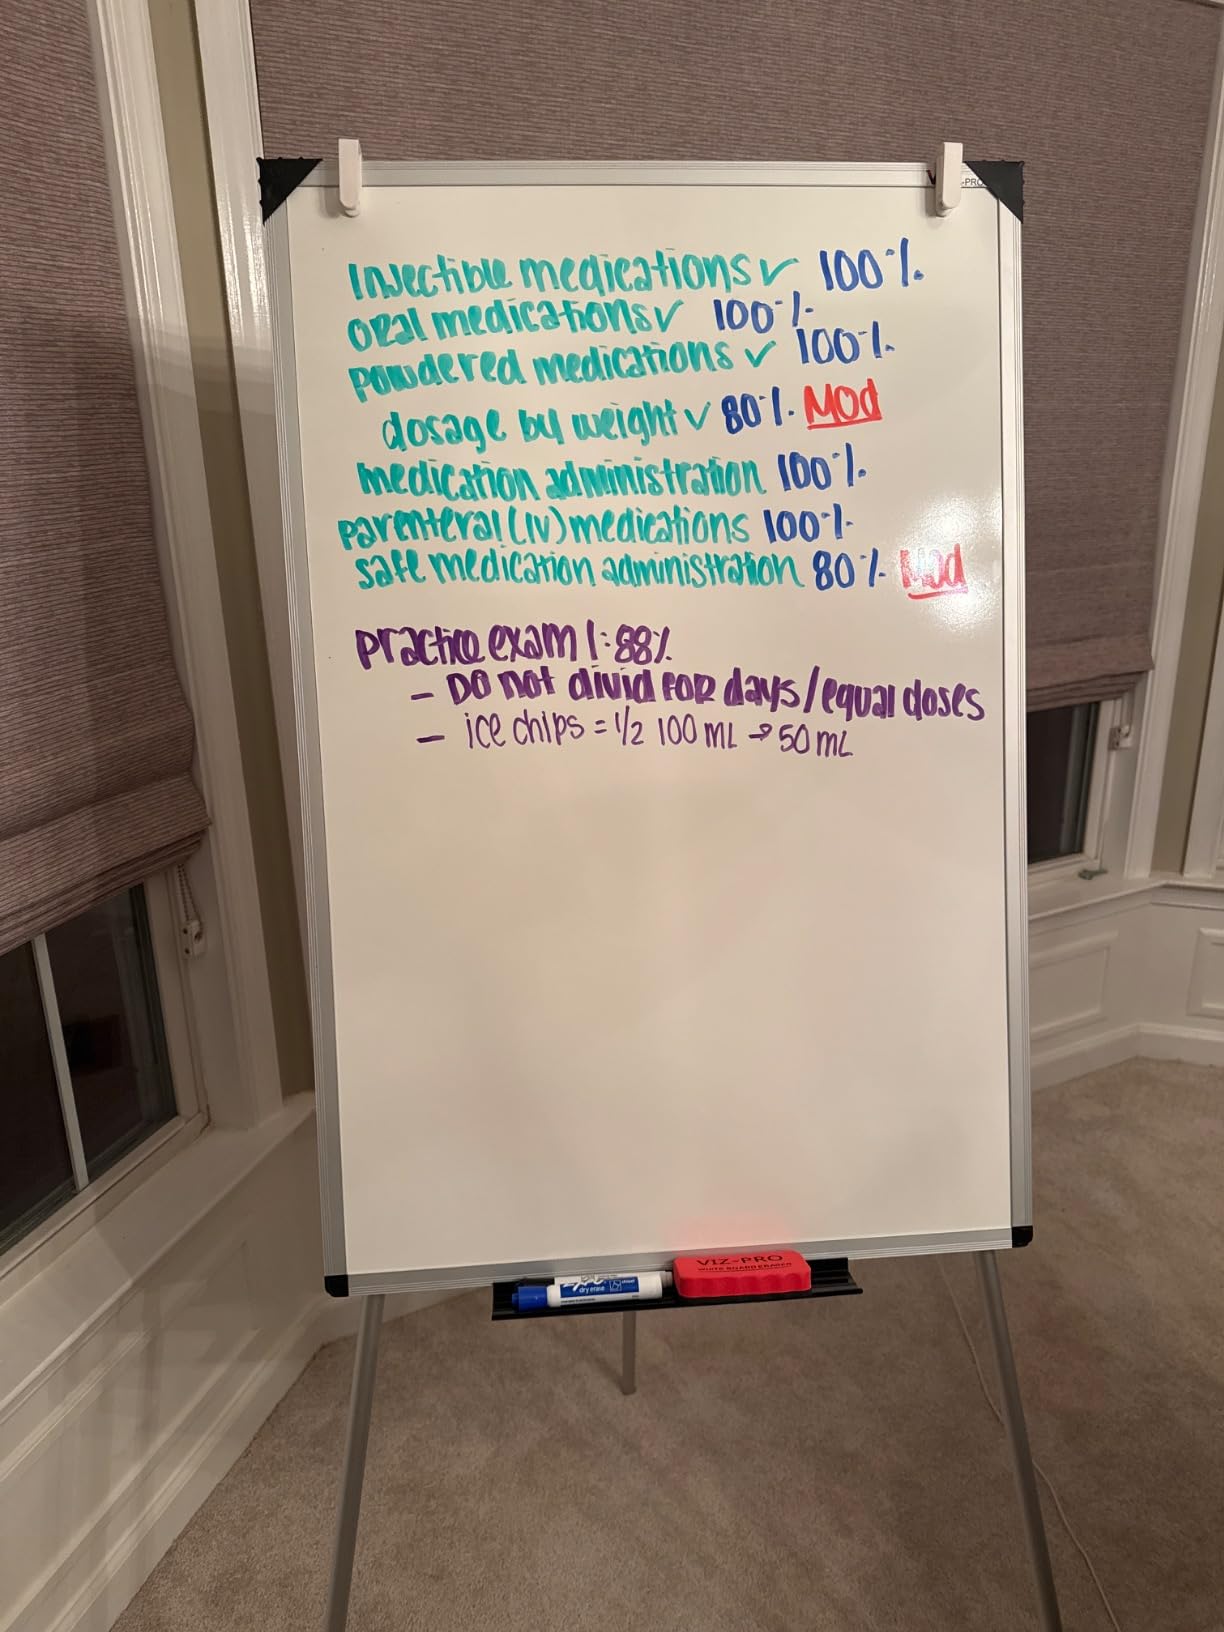 VIZ-PRO
Injectible medications ✓ 100%
oral medications ✓ 100%
powdered medications ✓ 100%
dosage by weight ✓ 80% Mod
medication administration 100%
parenteral (IV) medications 100%
safe medication administration 80% Mod
practice exam 1: 88%
- Do not divid for days/equal doses
- ice chips = 1/2 100 mL → 50 mL
VIZ-PRO
WHITE BOARD ERASER
dry erase